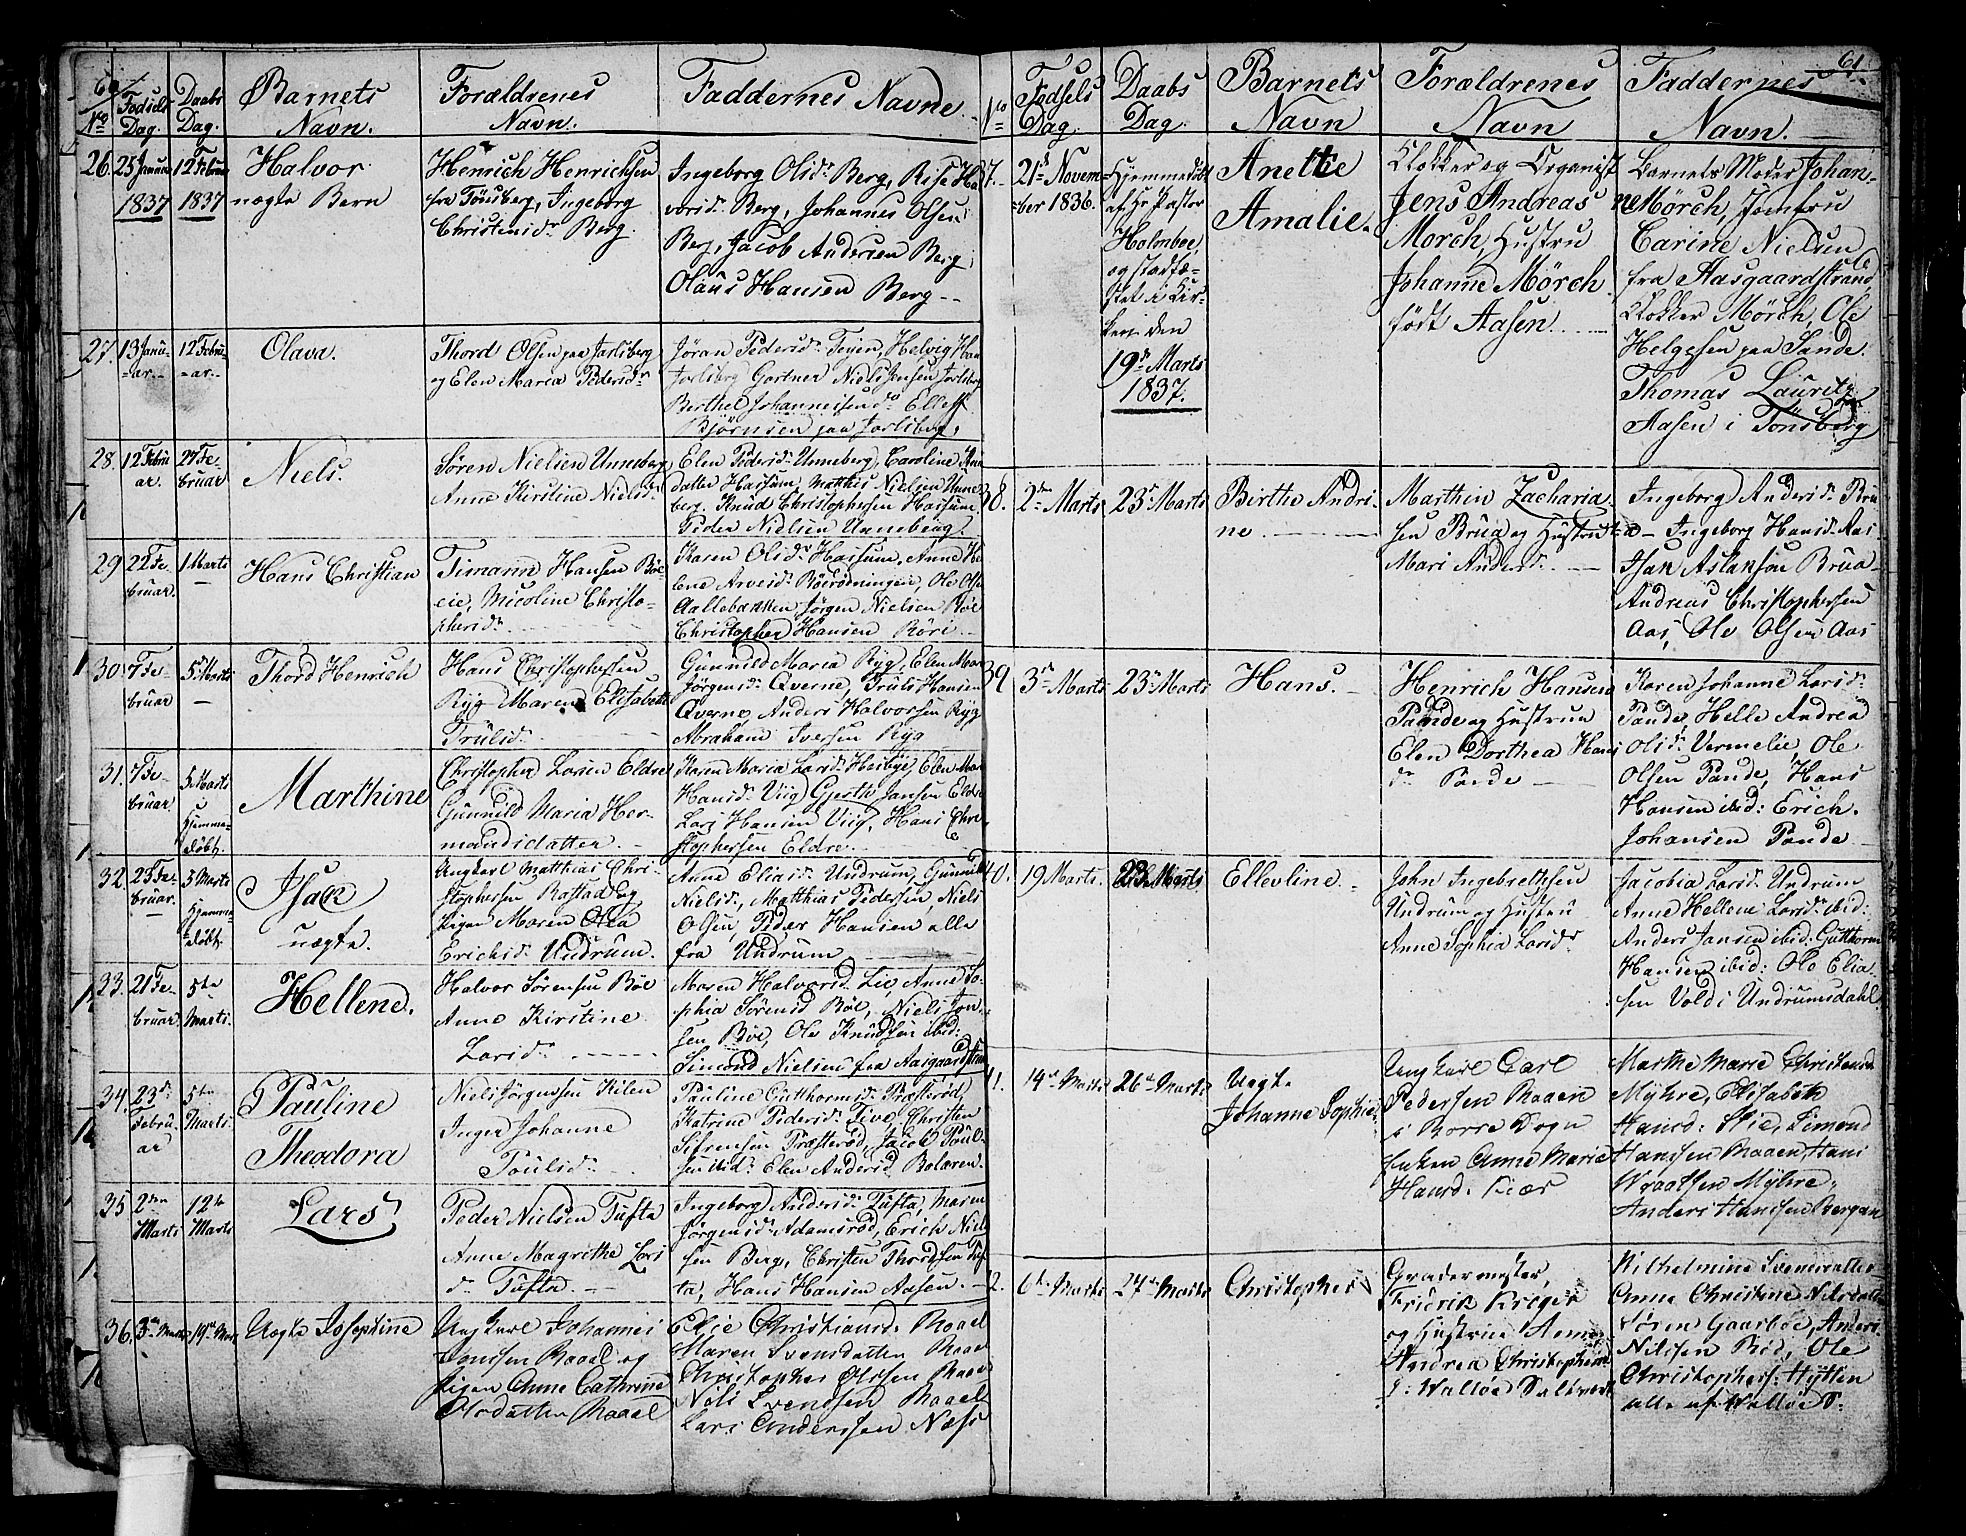 60
No
Fødsels Dag.
Daabs Dag.
Barnets Navn.
Forældrenes Navn.
Faddernes Navne.
26.
25 Januar
1837
12 Februar
1837
Halvor
uægte Barn
Henrich Henrichsen
fra Tønsberg, Ingeborg
Christensdr Berg.
Ingeborg Olsdr Berg,
vorsdr Berg, Johannes Olsen
Berg, Jacob Andersen Berg
Olaus Hansen Berg
27.
13 Janu-
ar.
12 Febru-
ar.
Olava.
Thord Olsen paa Jarlsberg
og Elen Maria Pedersdr
Jöran Pedersdr Teien, Helvig
Jarlsberg Gartner Niels Jensen Jarlsberg
Berthel Johannessen Ellef
Björnsen paa Jarlsberg.
28.
12 Febru
ar.
27 Fe-
bruar
Niels.
Søren Nielsen Unneberg
Anne Kirstine Nielsdr
Elen Pedersdr Unneberg, Caroline
datter Hassum, Mathis Nielsen Unne-
berg. Knud Christophersen Hassum
Peder Nielsen Unneberg.
29
22 Fe-
bruar.
1 Marts
Hans Christian
Timann Hansen Bøe
eie, Nicoline Christo-
phersdr
Karen Olsdr Hassum, Anne He
lene Arvesdr Böerødningen, Ole Ols
Jørgen Nielsen Bøe
Christopher Hansen Röri
30.
7 Fe-
bruar
5 Marts
Thord Henrich
Hans Christophersen
Ryg Maren Elisabeth
Trulsd.
Gunnild Maria Ryg, Elen Mar
Jörgensdr Qverne, Truls Hansen
Qverne, Anders Halvorsen Ryg
Abraham Iversen Ryg
31.
7 Fe-
bruar
5 Marts
Hjemme-
døbt.
Marthine
Christopher Larsen Eldre
Gunnild Maria Her-
mandsdatter.
Karen Maria Larsdr Heibye, Elen Mar
Hansdr Viig Gjerth Jansen Eldre
Lars Hansen Viig, Hans Chri-
stophersen Eldre
32.
25 Fe-
bruar.
5 Marts
Hjemme-
døbt.
Isak
uægte.
Ungkarl Matthias Chri-
stophersen Rastad og
Pigen Maren Olea
Erichsdr Undrum.
Anne Eliasdr Undrum, Gunnild
Nielsdr, Matthias Pedersen, Niels
Olsen, Peder Hansen alle
fra Undrum
33.
21 Fe-
bruar
5te
Marts.
Hellene.
Halvor Sørensen Bøe
Anne Kirstine
Larsdr
Maren Halvorsd. Lie, Anne So-
phia Sörensd Böe, Niels Jon-
sen Böe, Ole Knudsen ibid:
Simond Nielsen fra Aasgaardstrand
34.
23d.
Febru-
ar
5te
Marts.
Pauline
Theodora
Niels Jörgensen Kilen
Inger Johanne
Poulsdr
Pauline Gutthormsdr Præsteröd,
Katrine Pedersdr Tive, Christen
Sifrensen Præsteröd, Jacob Poul-
sen ibid: Elen Andersd Bolæren.
35
2den
Marts
12te
Marts
Lars
Peder Nielsen Tufta
Anne Magrethe Lars
dr Tufta.
Ingeborg Andersdr Tufta, Maren
Jörgensdr Adamsröd, Erich Niel-
sen Berg, Christen Thordsen Tuf-
ta, Hans Hansen Aasen.
36.
3die Marts
19de Marts
Uægte Josephine
Ung karl Johannes
Raael og
Pigen Anne Cathrine
Olsdatter Raael
Elie Christiansd. Raael
Maren Svensdatter Raael
Christopher Olssen Raael
Nils Svendsen Raael
Lars Anderssen Næss
61
No
Fødsels Dag.
Daabs Dag.
Barnets Navn
Forældrenes Navn
Faddernes Navn.
7.
21de Novem
ber 1836.
Hjemmedöbt
af Hr Pastor
Holmboe,
og stadfæ-
stet i Kir-
ken den
19de Marts
1837.
Anette
Amalie.
Klokker og Organist
Jens Andreas
Mørch, Hustru
Johanne Mørch
født Aasen
Barnets Moder Johan-
ne Mörch, Jomfru
Carine Nielsen
fra Aasgaardstrand,
Klokker Mørch, Ole
Helgesen paa Sande.
Thomas Lauritz
Aasen i Tönsberg
38.
2den Marts
23de Marts
Birthe Andri-
ne.
Marthin Zacharia
sen Brua og Hustrue
Mari Andersdr
Ingeborg Andersdr Bru
a- Ingeborg Hansdr Aas
Isak Aslaksen Brua
Andreas Christophersen
Aas, Ole Olsen Aas
39
3de Marts
23de Marts
Hans.
Henrich Hansen
Pande og Hustrue
Elen Dorthea Hans
dr Pande
Karen Johanne Larsdr
Pande, Helle Andrea
Olsdr Vermelie, Ole
Olsen Pande, Hans
Hansen ibid: Erich
Johansen Pande
40.
19 Marts.
23de Marts
Ellevline.
John Ingebrethsen
Undrum og Hustru
Anne Sophia Larsdr
Jacobia Larsdr Undrum
Anne Hellene Larsdr ibid:
Anders Jansen ibid: Gutthorm
Hansen ibid: Ole Elia-
sen Vold i Undrumsdahl.
41.
14de Marts
26de Marts
Uægte
Johanne Sophie.
Ung karl Carl
Pedersen Raaen
i Borre Sogn
Anne Marie
Hansd. Kiær
Marthe Marie Christensd
Myhre, Elisabeth
Hansd: Skie, Simond
Hanssen Raaen, Hans
Wraalsen Myhre,
Anders Hanssen Bergan
2.
6te Marts
27de Marts
Christopher
Gradermester,
Friderik Kriger
og Hustrue Anne
Andrea Christophersd
i Walløe Saltværk
Vilhelmine Svensdatter
Anne Christine Nilsdatter
Sören Gaarboe, Anders
Nilssen Röd, Ole
Christophers: Hytten
alle af Walløe S.